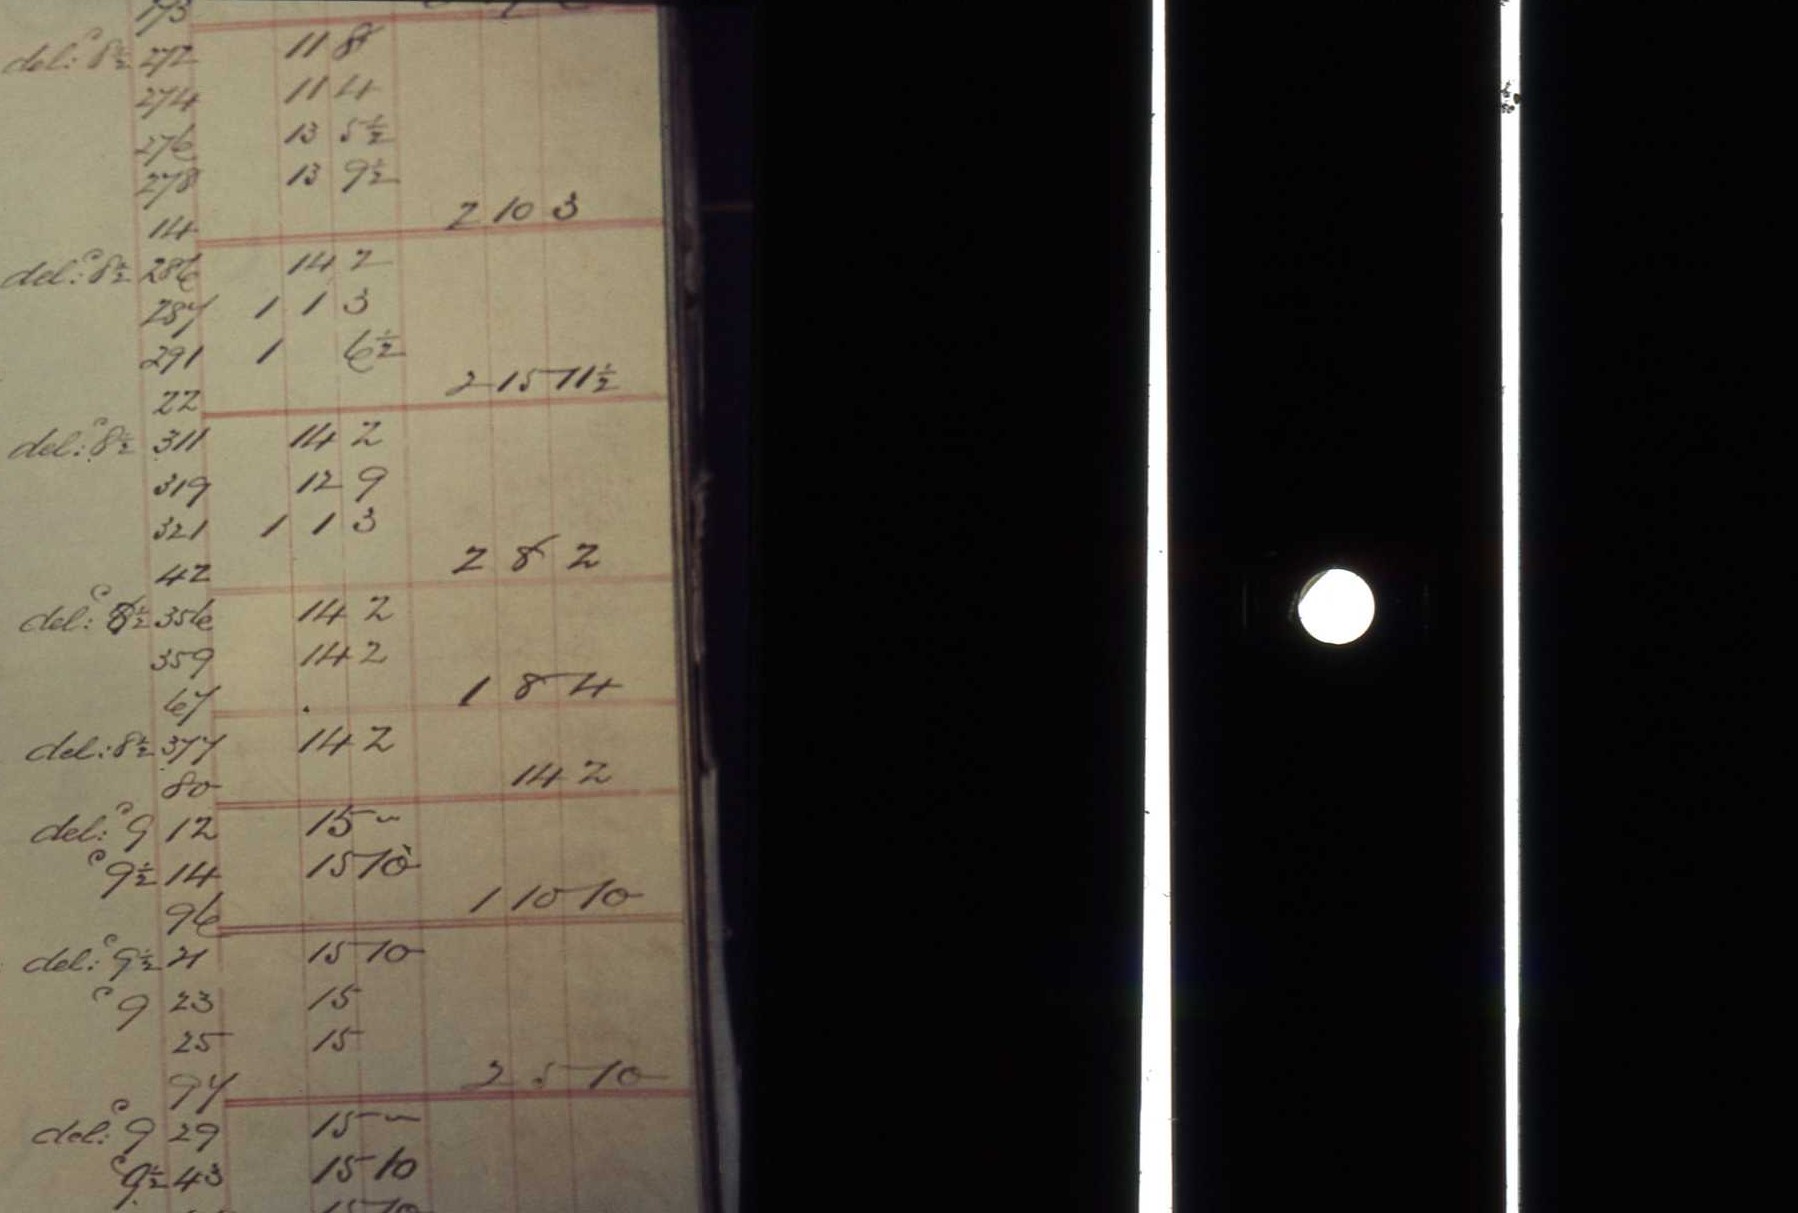 173
del: c 8½ 272 11 8
274 11 4
276 13 5½
278 13 9½
14 2 10 3
del: c 8½ 286 14 2
287 1 1 3
291 1 6½
22 2 15 11½
del: c 8½ 311 14 2
319 12 9
321 1 1 3
42 2 8 2
del: c 8½ 356 14 2
359 14 2
67 1 8 4
del: 8½ 377 14 2
80 14 2
del: c 9 12 15 ~
c 9½ 14 15 10
96 1 10 10
del: c 9½ 21 15 10
c 9 23 15
25 15
97 2 5 10
del: c 9 29 15 ~
c 9½ 43 15 10
15 10